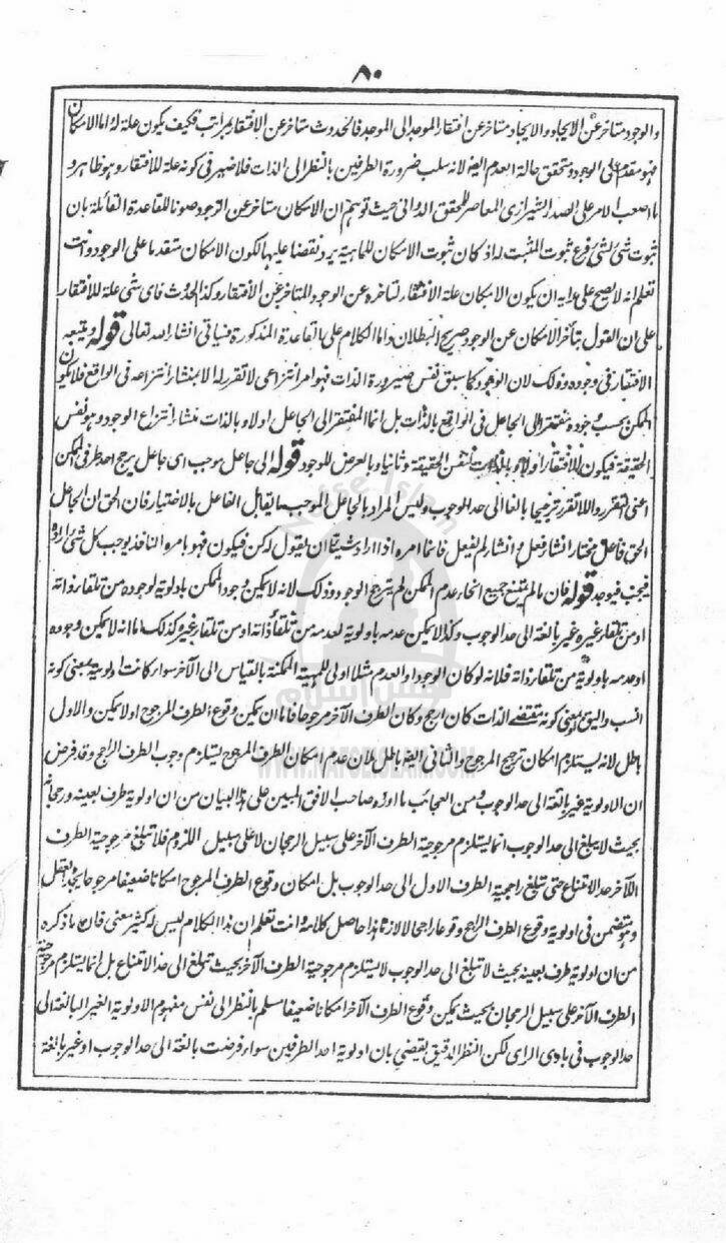 ٨٠
والوجود متاخر عن الايجاد والايجاد متاخر عن افتقار الموجد الى الموجد فالحدوث متاخر عن الافتقار بمراتب فكيف يكون علة له واما الامكان
فهو مقدم على الوجود ومتحقق حالة العدم ايضا لانه سلب ضرورة الطرفين بالنظر الى الذات فلا ضير فى كونه علة للافتقار وهو ظاهر و
ما اصعب الامر على الصدر الشيرازى المعاصر للمحقق الدوانى حيث توهم ان الامكان متاخر عن الوجود صونا للقاعدة القائلة بان
ثبوت شئ لشئ فرع ثبوت المثبت له اذ كان ثبوت الامكان للماهية يرد نقضا عليها لكون الامكان متقدما على الوجود وانت
تعلم انه لا يصح على رايه ان يكون الامكان علة الافتقار لتاخره عن الوجود المتاخر عن الافتقار وكذا الحدوث فاى شئ علة للافتقار
على ان القول بتأخر الامكان عن الوجود صريح البطلان واما الكلام على القاعدة المذكورة فسياتى انشار الله تعالى قوله ويتبعه
الافتقار فى وجوده وذلك لان الوجود كما سبق نفس صيرورة الذات فهو امر انتزاعى لا تقرر له الا بمنشار انتزاعه فى الواقع فلا يكون
الممكن بحسب وجوده مفتقرا الى الجاعل فى الواقع بالذات بل انما المفتقر الى الجاعل اولا وبالذات منشار انتزاع الوجود وهو نفس
الحقيقة فيكون للافتقار اولا وبالذات لنفس الحقيقة وثانيا وبالعرض للوجود قوله الى جاعل موجب اى جاعل يرجح احد طرفى الممكن
اعنى التقرر واللاتقرر ترجيحا بالغا الى حد الوجوب وليس المراد بالجاعل الموجب ما يقابل الفاعل بالاختيار فان الحق ان الجاعل
الحق فاعل مختار انشار فعل وانشار لم يفعل فانما امره اذا اراد شيئا ان يقول له كن فيكون فهو بامره النافذ يوجب كل شئ اراده
فيجب فيوجد قوله فان مالم يمتنع جميع انحاء عدم الممكن لم يترجح الوجود وذلك لانه لا يمكن وجود الممكن باولوية لوجوده من تلقار ذاته
او من تلقار غيره غير بالغة الى حد الوجوب وكذا لا يمكن عدمه باولوية لعدمه من تلقار ذاته او من تلقار غيره كذلك اما انه لا يمكن وجوده
او عدمه باولوية من تلقار ذاته فلانه لو كان الوجود او العدم مثلا اولى للمهية الممكنة بالقياس الى الآخر سوار كانت اولوية بمعنى كونه
انسب واليق او بمعنى كونه مقتضى الذات كان ارجح وكان الطرف الآخر مرجوحا فاما ان يمكن وقوع الطرف المرجوح او لا يمكن والاول
باطل لانه يستلزم امكان ترجيح المرجوح والثانى ايضا باطل لان عدم امكان الطرف المرجوح يستلزم وجوب الطرف الراجح وقد فرض
ان الاولوية غير بالغة الى حد الوجوب ومن العجائب ما اورده صاحب الافق المبين على هذا البيان من ان اولوية طرف بعينه ورجحانه
بحيث لا يبلغ الى حد الوجوب انما يستلزم مرجوحية الطرف الآخر على سبيل الرجحان لا على سبيل اللزوم فلا تبلغ مرجوحية الطرف
الآخر حد الامتناع حتى تبلغ راجحية الطرف الاول الى حد الوجوب بل امكان وقوع الطرف المرجوح امكانا ضعيفا مرجوحا يجده العقل
وهو متضمن فى اولوية وقوع الطرف الراجح وقوعا راجحا لا لازما هذا حاصل كلامه وانت تعلم ان هذا الكلام ليس له كثير معنى فان ما ذكره
من ان اولوية طرف بعينه بحيث لا تبلغ الى حد الوجوب لا يستلزم مرجوحية الطرف الآخر بحيث تبلغ الى حد الامتناع بل انما يستلزم مرجوحية
الطرف الآخر على سبيل الرجحان بحيث يمكن وقوع الطرف الآخر امكانا ضعيفا مسلم بالنظر الى نفس مفهوم الاولوية الغير البالغة الى
حد الوجوب فى بادى الراى لكن النظر الدقيق يقضي بان اولوية احد الطرفين سواء فرضت بالغة الى حد الوجوب او غير بالغة
WWW.NAFSEISLAM.COM